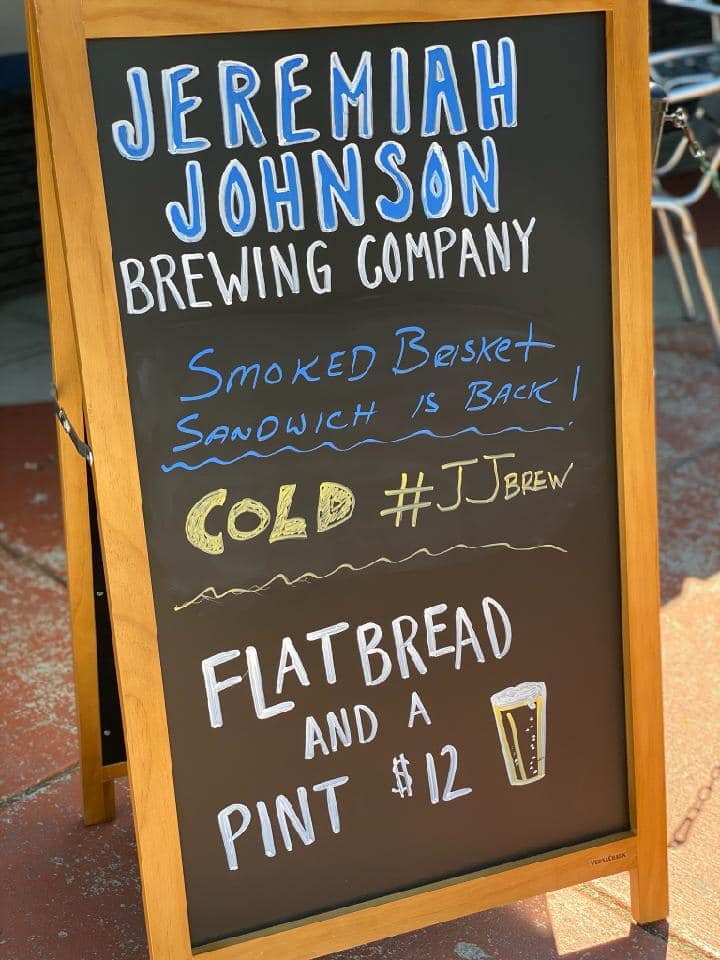 JEREMIAH
JOHNSON
BREWING COMPANY
SMOKED BRISKET
SANDWICH IS BACK!
COLD #JJBREW
FLATBREAD
AND A
PINT $12